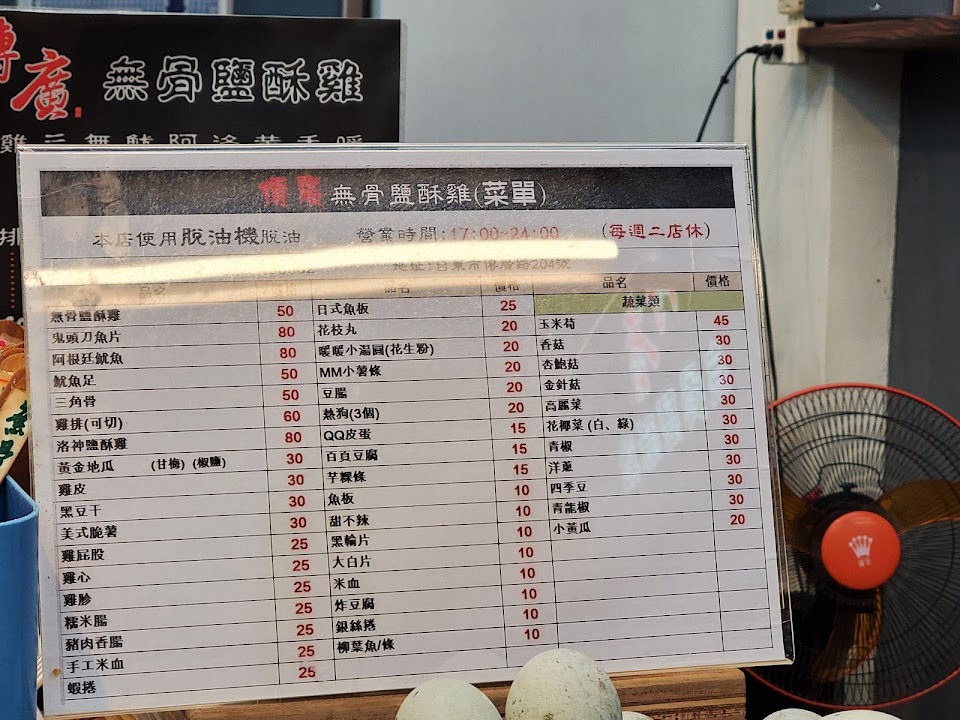 廣
無骨鹽酥雞
排
無骨鹽酥雞(菜單)
本店使用脫油機脫油 營業時間:17:00~24:00 (每週二店休)
地址:台東市傳廣路204號
品名 價格 品名 價格 品名 價格
無骨鹽酥雞 50 日式魚板 25 蔬菜類
鬼頭刀魚片 80 花枝丸 20 玉米筍 45
阿根廷魷魚 80 暖暖小湯圓(花生粉) 20 香菇 30
魷魚足 50 MM小薯條 20 杏鮑菇 30
三角骨 50 豆腸 20 金針菇 30
雞排(可切) 60 熱狗(3個) 20 高麗菜 30
洛神鹽酥雞 80 QQ皮蛋 15 花椰菜 (白、綠) 30
黃金地瓜 (甘梅) (椒鹽) 30 百頁豆腐 15 青椒 30
雞皮 30 芋粿條 15 洋蔥 30
黑豆干 30 魚板 10 四季豆 30
美式脆薯 30 甜不辣 10 青龍椒 30
雞屁股 25 黑輪片 10 小黃瓜 20
雞心 25 大白片 10
雞胗 25 米血 10
糯米腸 25 炸豆腐 10
豬肉香腸 25 銀絲捲 10
手工米血 25 柳葉魚/條 10
蝦捲 25